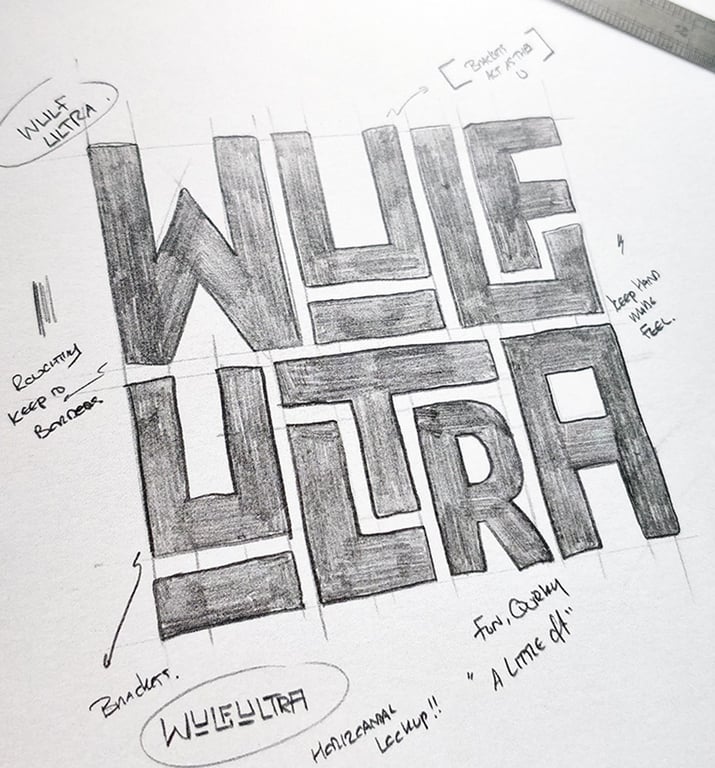 [ BRACKETS
ACT AS THE
U ]
WULF
ULTRA.
WULF
ULTRA
KEEP HAND
MADE
FEEL.
KEEP TO
BORDERS
FUN, QUIRKY
"A LITTLE OFF"
BRACKETS.
WULFULTRA
HORIZONTAL
LOCKUP!!